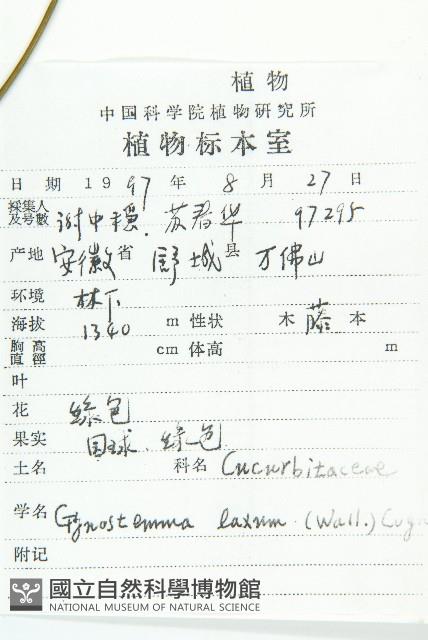 植物
中国科学院植物研究所
植物标本室
日期 1997年 8月 27日
採集人及号數 谢中稳. 苏君华 97295
产地 安徽省 舒城县 万佛山
环境 林下
海拔 1340 m 性状 木 藤 本
胸高直徑 cm 体高 m
叶
花 绿色
果实 园球、绿色
土名 科名 Cucurbitaceae
学名 Gynostemma laxum (Wall.) Cogn
附记
國立自然科學博物館
NATIONAL MUSEUM OF NATURAL SCIENCE